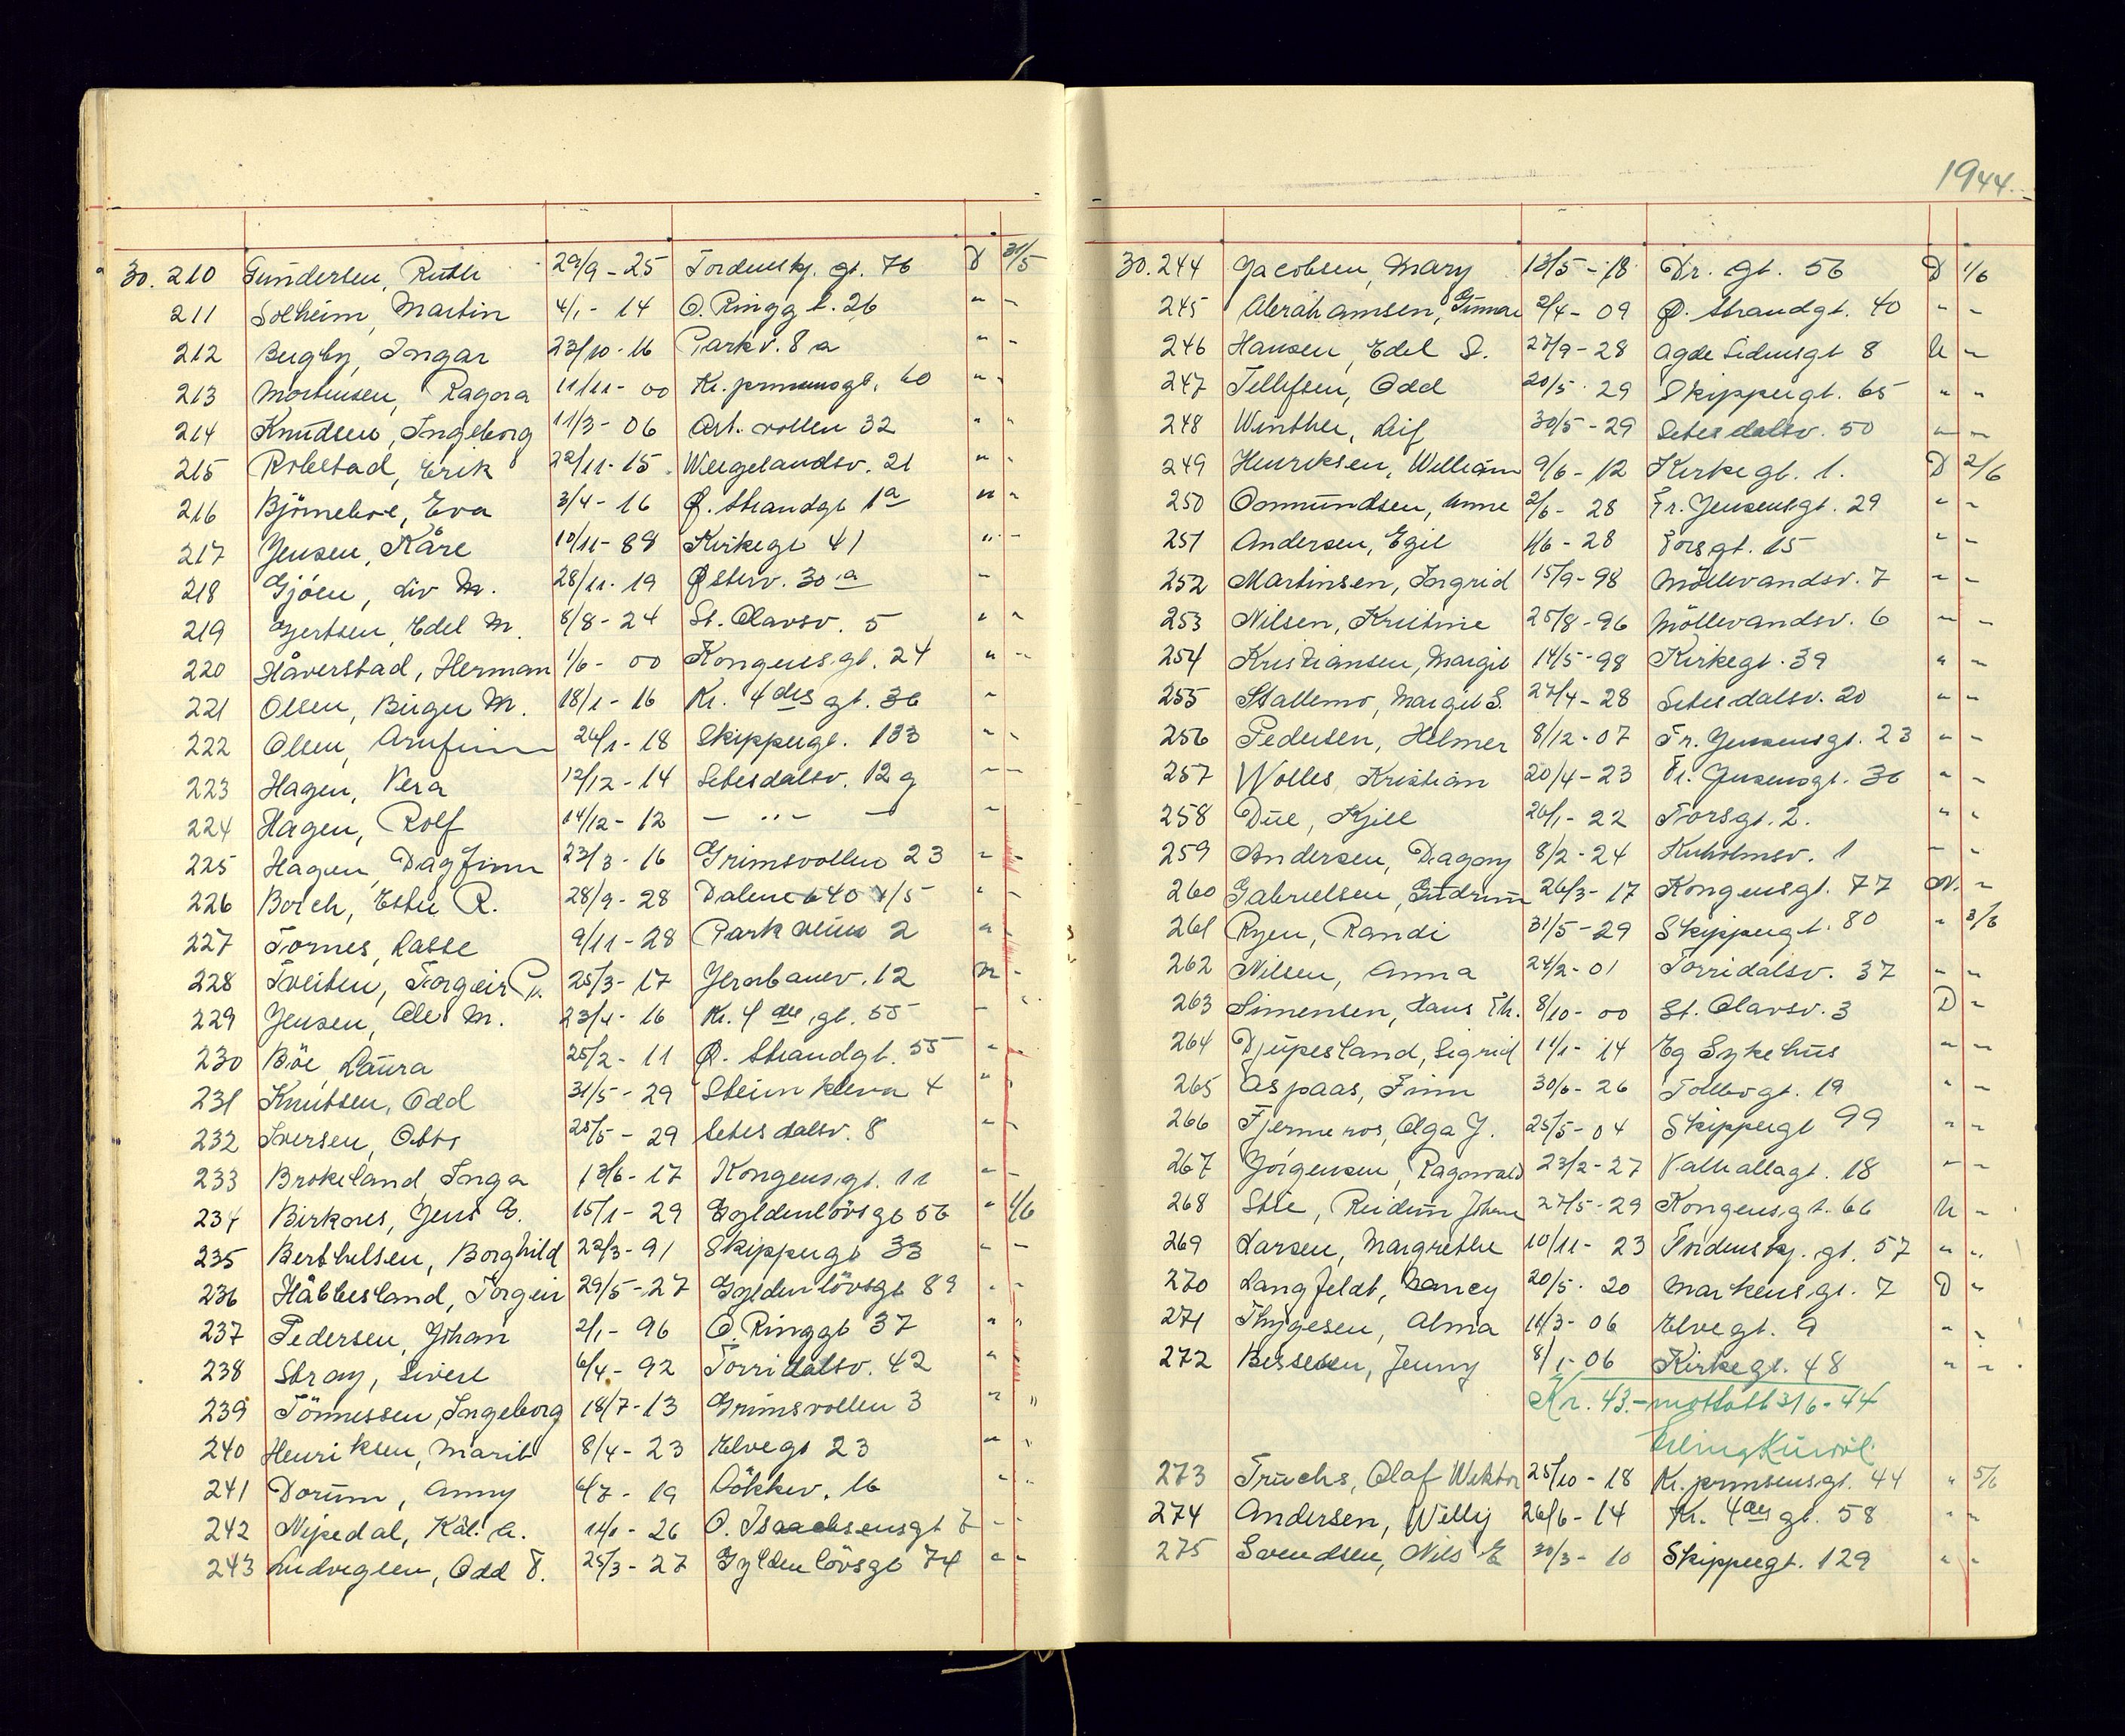 30. 210 Gundersen, Ruth 29/9 - 25 Tordenskj. gt. 76 D 31/5
211 Solheim, Martin 4/1 - 14 O. Ringgt. 26 " "
212 Bugby, Ingar 23/10 - 16 Parkv. 8 a " "
213 Mortensen, Ragna 11/11 - 00 Kr. prinsensgt. 60 " "
214 Knudsen, Ingeborg 11/3 - 06 Art. vollen 32 " "
215 Robstad, Erik 22/11 - 15 Wergelandsv. 21 " "
216 Björneboe, Eva 3/4 - 16 Ø. Strandgt 1a " "
217 Jensen, Kåre 10/11 - 89 Kirkegt 41 " "
218 Gjöen, Liv M. 28/11 - 19 Østerv. 30 a "
219 Gjertsen, Edel M. 8/8 - 24 St. Olavsv. 5 " "
220 Håverstad, Herman 1/6 - 00 Kongensgt. 24 " "
221 Olsen, Birger M. 18/1 - 16 Kr. 4des gt. 36 "
222 Olsen, Arnfinn 26/1 - 18 Skippergt. 133 " "
223 Hagen, Vera 12/12 - 14 Setesdalsv. 12 g " "
224 Hagen, Rolf 14/12 - 12 — " — — "
225 Hagen, Dagfinn 23/3 - 16 Grimsvollen 23 " "
226 Borch, Ester R. 28/9 - 28 Dalene 640 x/5 " "
227 Tornes, Lasse 9/11 - 28 Parkveien 2 " "
228 Tveiten, Torgeir P. 25/3 - 17 Jernbanev. 12 N "
229 Jensen, Ole M. 23/4 - 16 Kr. 4des gt. 55 " "
230 Böe, Laura 25/2 - 11 Ø. Strandgt. 55 " "
231 Knutsen, Odd 31/5 - 29 Steinkleva 4 " "
232 Iversen, Otto 25/5 - 29 Setesdalsv. 8 " "
233 Brokeland, Inga 13/6 - 17 Kongensgt. 11 " "
234 Birknes, Jens G. 15/1 - 29 Gyldenlövsgt 56 " 1/6
235 Berthelsen, Borghild 22/3 - 91 Skippergt 33 " "
236 Håbbesland, Torgeir 29/5 - 27 Gyldenlövsgt 89 " "
237 Pedersen, Johan 2/1 - 96 O. Ringgt 37 " "
238 Stray, Sivert 6/4 - 92 Torridalsv. 42 "
239 Tönnessen, Ingeborg 18/7 - 13 Grimsvollen 3 " "
240 Henriksen, Marit 8/4 - 23 Elvegt 23 " "
241 Dorum, Anny 6/7 - 19 Lökkev. 16 " "
242 Nipedal, Kål. A. 14/1 - 26 O. Isaachsensgt 7 " "
243 Ludvigsen, Odd T. 25/3 - 27 Gyldenlövsgt 74 " "
1944.
30. 244 Jacobsen, Mary 13/5 - 18 Dr. gt. 56 D 1/6
245 Abrahamsen, Gunnar 2/4 - 09 Ø. Strandgt. 40 " "
246 Hansen, Edel S. 27/9 - 28 Agde Sidensgt 8 U "
247 Tellefsen, Odd 20/5 - 29 Skippergt. 65 " "
248 Winther, Leif 30/5 - 29 Setesdalsv. 50 " "
249 Henriksen, William 9/6 - 12 Kirkegt. 1. D 2/6
250 Osmundsen, Anne 2/6 - 28 Fr. Jensensgt. 29 " "
251 Andersen, Egil 1/6 - 28 Torsgt. 15 " "
252 Martinsen, Ingrid 15/9 - 98 Möllevandsv. 7 " "
253 Nilsen, Kristine 25/8 - 96 Möllevandsv. 6 " "
254 Kristiansen, Margit 14/5 - 98 Kirkegt. 39 " "
255 Stallemo, Margit S. 27/4 - 28 Setesdalsv. 20 " "
256 Pedersen, Helmer 8/12 - 07 Fr. Jensensgt. 23 " "
257 Wolles, Kristian 20/4 - 23 Fr. Jensensgt. 36 " "
258 Due, Kjell 26/1 - 22 Torsgt. 2. " "
259 Andersen, Dagny 8/2 - 24 Kuholmsv. 1 " "
260 Gabrielsen, Gudrun 26/3 - 17 Kongensgt. 77 N. "
261 Ryen, Randi 31/5 - 29 Skippergt. 80 " 3/6
262 Nilsen, Anna 24/2 - 01 Torridalsv. 37 " "
263 Simensen, Hans Th. 8/10 - 00 St. Olavsv. 3 D "
264 Djupesland, Sigrid 11/1 - 14 Eg Sykehus " "
265 Aspaas, Finn 30/6 - 26 Tollbogt. 19 " "
266 Fjermeros, Olga J. 25/5 - 04 Skippergt 99 " "
267 Jörgensen, Ragnvald 23/2 - 27 Valhallagt. 18 " "
268 Stie, Reidun Johanne 27/5 - 29 Kongensgt. 66 U "
269 Larsen, Margrethe 10/11 - 23 Tordenskj. gt. 57 " "
270 Langfeldt, Nancy 20/5 - 20 Markensgt. 7 D "
271 Thygesen, Alma 11/3 - 06 Elvegt. 9 " "
272 Bessesen, Jenny 8/1 - 06 Kirkegt. 48 " "
Kr. 43.- mottatt 3/6 - 44
273 Truchs, Olaf Wiktor 25/10 - 18 Kr. prinsensgt. 44 " 5/6
274 Andersen, Willy 26/6 - 14 Kr. 4des gt. 58 " "
275 Svendsen, Nils E 30/3 - 10 Skippergt. 129 " "